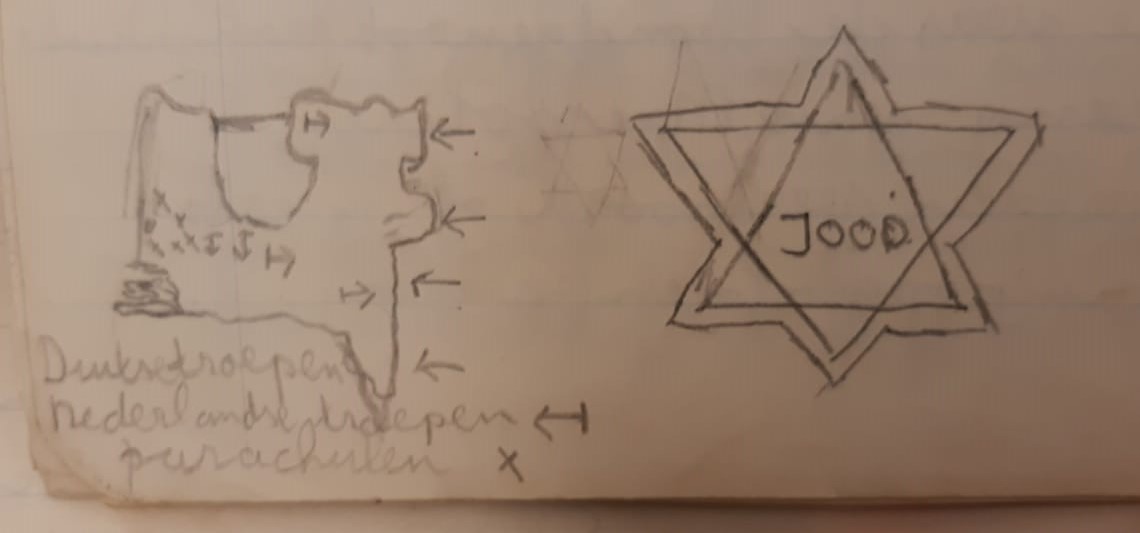 JOOD
Duitse troepen
Nederlandse troepen
parachuten x